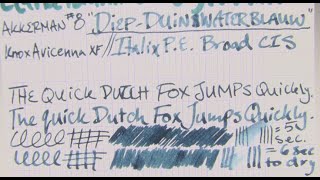 AKKERMAN #8 "DIEP-DUINSWATERBLAUW"
KNOX AVICENNA XF // Italix P.E. Broad CIS
THE QUICK DUTCH FOX JUMPS QUICKLY.
The quick Dutch Fox Jumps Quickly.
= 5 sec.
= 6 sec to dry